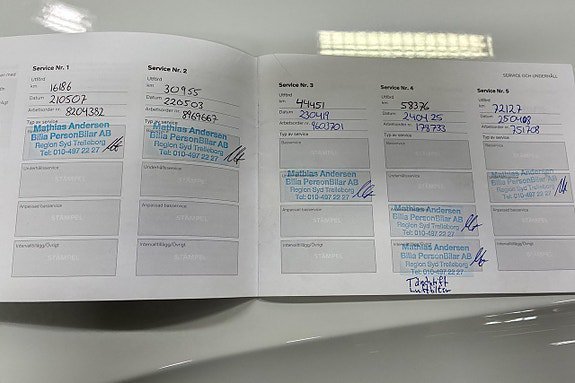 SERVICE OCH UNDERHÅLL
Service Nr. 1
Utförd
km 16186
Datum 210507
Arbetsorder nr. 8204382
Typ av service
Mathias Andersen
Billia PersonBilar AB
Region Syd Trelleborg
Tel: 010-497 22 27
Underhållsservice
STÄMPEL
Anpassad basservice
STÄMPEL
Intervalltillägg/Övrigt
STÄMPEL
Service Nr. 2
Utförd
km 30955
Datum 220503
Arbetsorder nr. 8969667
Typ av service
Mathias Andersen
Billia PersonBilar AB
Region Syd Trelleborg
Tel: 010-497 22 27
Underhållsservice
STÄMPEL
Anpassad basservice
STÄMPEL
Intervalltillägg/Övrigt
STÄMPEL
Service Nr. 3
Utförd
km 44451
Datum 230419
Arbetsorder nr. 9601701
Typ av service
Basservice
Mathias Andersen
Billia PersonBilar AB
Region Syd Trelleborg
Tel: 010-497 22 27
Anpassad basservice
STÄMPEL
Intervalltillägg/Övrigt
STÄMPEL
Service Nr. 4
Utförd
km 58376
Datum 240425
Arbetsorder nr. 178733
Typ av service
Basservice
Mathias Andersen
Billia PersonBilar AB
Region Syd Trelleborg
Tel: 010-497 22 27
Mathias Andersen
Billia PersonBilar AB
Region Syd Trelleborg
Tel: 010-497 22 27
Tändstift
Luftfilter
Service Nr. 5
Utförd
km 72127
Datum 250408
Arbetsorder nr. 751708
Typ av service
Basservice
Mathias Andersen
Billia PersonBilar AB
Region Syd Trelleborg
Tel: 010-497 22 27
Anpassad basservice
STÄMPEL
Intervalltillägg/Övrigt
STÄMPEL